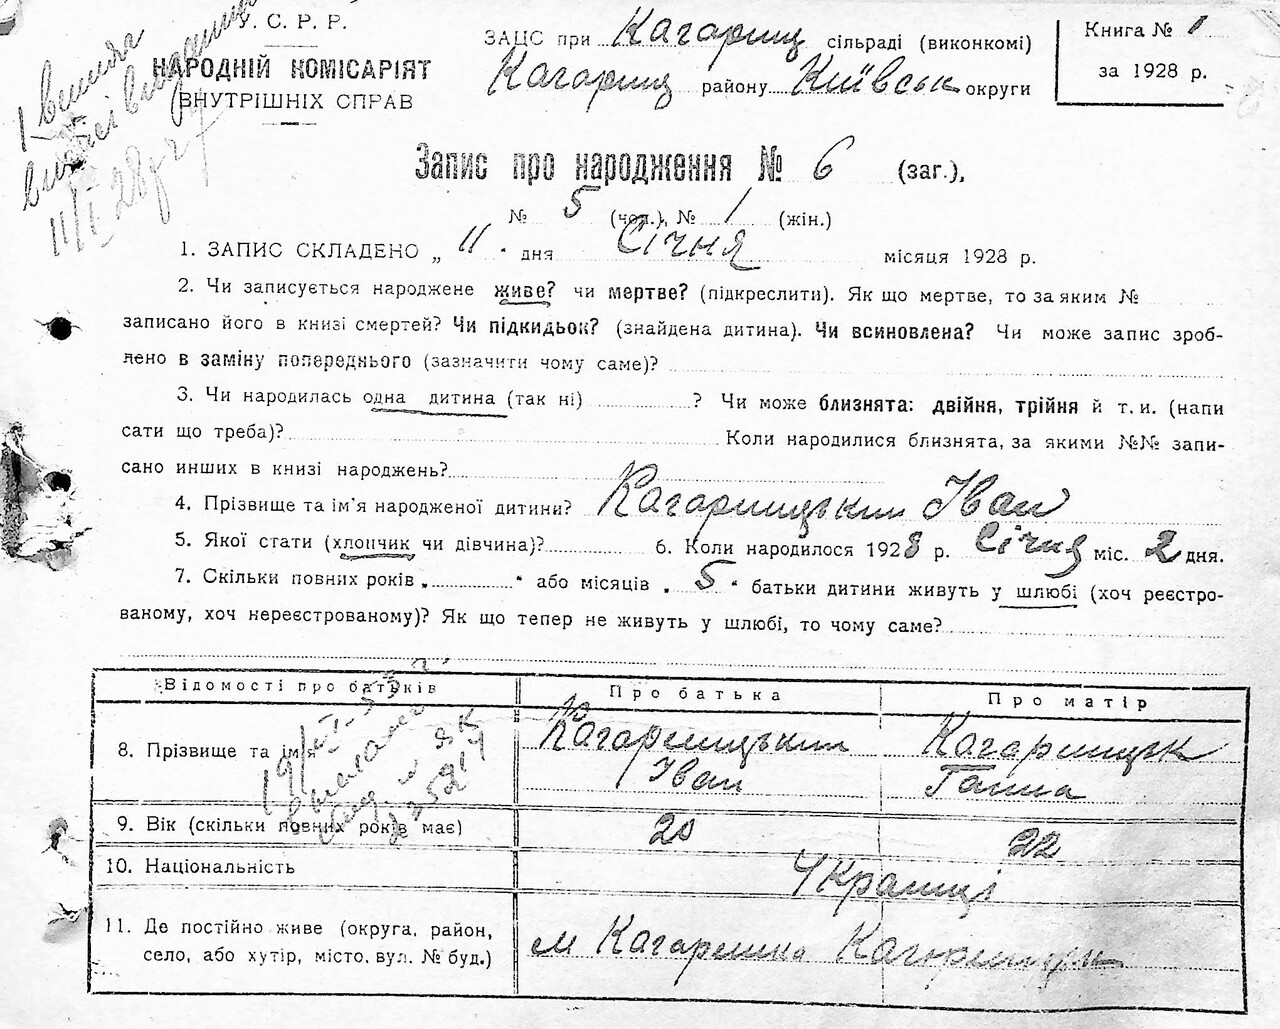 У. С. Р. Р.
НАРОДНІЙ КОМІСАРІЯТ
ВНУТРІШНІХ СПРАВ
ЗАЦС при Кагарлиц сільраді (виконкомі)
Кагарлиц району Київськ округи
Книга № 1
за 1928 р.
Запис про народження № 6 (заг.),
№ 5 (чол.), № 1 (жін.)
11/I 28 р
1. ЗАПИС СКЛАДЕНО „ 11 " дня Січня місяця 1928 р.
2. Чи записується народжене живе? чи мертве? (підкреслити). Як що мертве, то за яким №
записано його в книзі смертей? Чи підкидьок? (знайдена дитина). Чи всиновлена? Чи може запис зроб-
лено в заміну попереднього (зазначити чому саме)?
3. Чи народилась одна дитина (так ні) ? Чи може близнята: двійня, трійня й т. и. (напи
сати що треба)? Коли народилися близнята, за якими №№ запи-
сано инших в книзі народжень?
4. Прізвище та ім'я народженої дитини? Кагарлицький Іван
5. Якої стати (хлопчик чи дівчина)? 6. Коли народилося 1928 р. Січня міс. 2 дня.
7. Скільки повних років „ " або місяців „ 5 " батьки дитини живуть у шлюбі (хоч реєстро-
ваному, хоч нереєстрованому)? Як що тепер не живуть у шлюбі, то чому саме?
Відомості про батьків Про батька Про матір
8. Прізвище та ім'я Кагарлицький Кагарлицьк
Іван Ганна
9. Вік (скільки повних років має) 20 22
10. Національність Українці
11. Де постійно живе (округа, район,
село, або хутір, місто, вул. № буд.) м Кагарлик Кагарлицьк